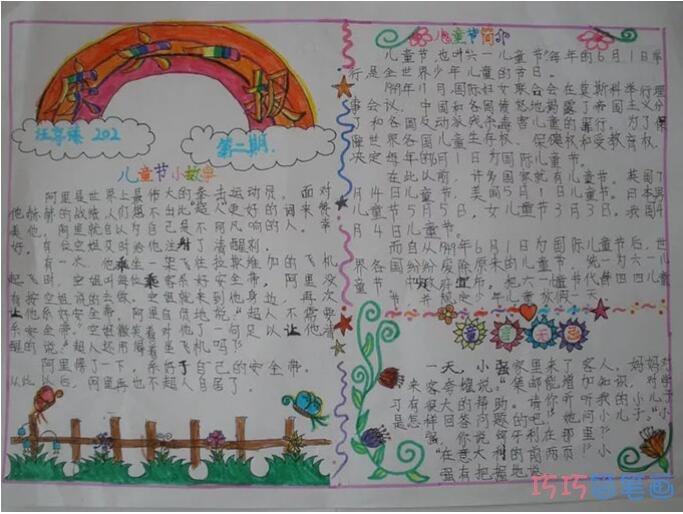 庆六一报
202
第二期
儿童节小故事
阿里是世界上最伟大的拳击运动员。面对
他赫赫的战绩人们想不出比"超人"更好的词来赞
美他。阿里就自以为自己是不可凡响的人。幸
好,有位空姐及时给他注射了清醒剂。
有一次,他乘坐一架飞往拉斯维加的飞机
起飞时,空姐叫每位乘客系好安全带,阿里没
有按空姐说的去做。空姐就来到他身边,再次
让他系好安全带。阿里自负地说:"超人不需要
系安全带。"空姐微笑着对他了一句足以让他清
醒的说:"超人还用得着坐飞机吗?"
阿里愣了一下,系好了自己的安全带。
从此以后,阿里再也不超人自居了。
儿童节简介
儿童节,也叫六一儿童节"每年的6月1日举
行,是全世界少年儿童的节日。
1949年11月,国际妇女联合会在莫斯科举行理
事会议,中国和各国愤怒地揭露了帝国主义分
子和各国反动派残杀毒害儿童的罪行。为了保
障世界各国儿童生存权、保健权和受教育权,
决定每年的6月1日为国际儿童节。
在此以前,许多国家就有儿童节,英国7
月14日儿童节,美国5月1日儿童节。日本男
儿童节5月5日,女儿童节3月3日。我国4
月4日儿童节。
而自从1949年6月1日为国际儿童节后,世
界各国纷纷废除原来的儿童节,统一为六一儿
童节。中政府宣布,把六一儿童节代替四四儿童
节,并规定少年儿童放假一天
童言天色
一天,小强家里来了客人。妈妈对
来客夸耀说:"集邮能增加知识,对学
习有很大的帮助。请你听听我的小儿子
是怎样回答问题的吧!"她问小儿子:"小
强,你说匈牙利在那里?"小
强有把握地说:"在意大利的前两页"
巧巧简笔画